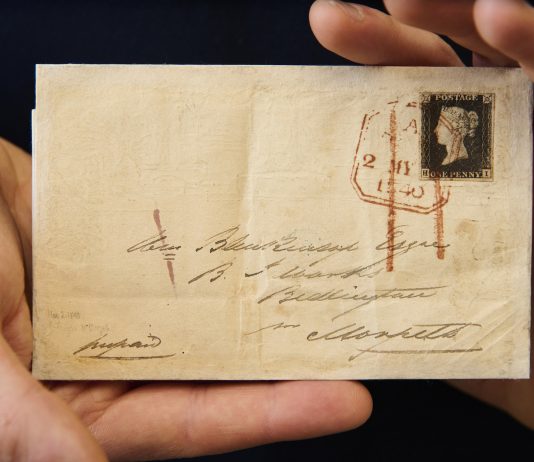 POSTAGE
ONE PENNY
H I
A
2 MY
1840
Wm Blenkinsop Esqre
B. I. Works
Bedlington
nr Morpeth
prepaid